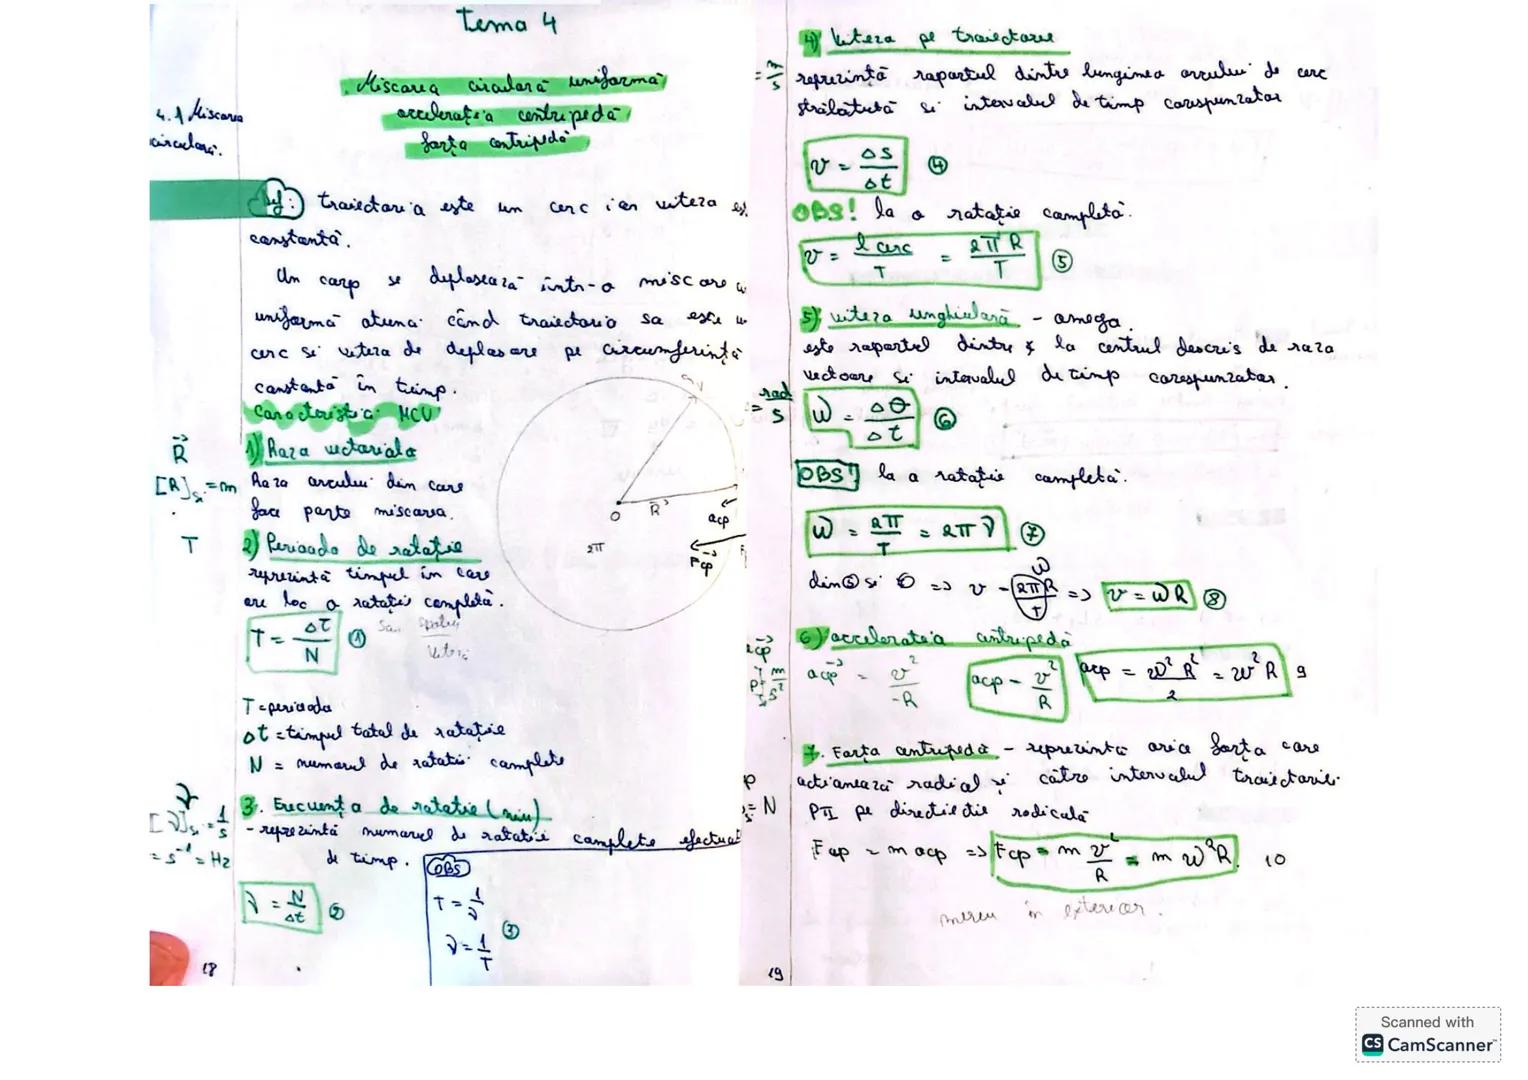 Tema 4
Miscarea circulară uniformă
accelerația centripedă
forța centripedă
4.1 Miscarea
circulară.
Def: traiectoria este un cerc iar viteza es
constantă.
Un corp se deplasează într-o miscare
uniformă atunci când traiectoria sa este u
cerc si viteza de deplasare pe circumferință
constantă în timp.
Caracteristici MCU
R⃗
[R]si = m
1) Raza vectorială
Raza arcului din care
face parte miscarea.
O R⃗ acp
2π Fcp
T
2) Perioada de rotație
reprezintă timpul în care
are loc o rotație completă.
T = Δt/N (1)
T = perioada
Δt = timpul total de rotație
N = numarul de rotatii complete
3. Frecvența de rotatie (niu)
- reprezintă numarul de rotatii complete efectuat
de timp.
ν
[ν]si = 1/s
= s⁻¹ = Hz
ν = N/Δt (2)
OBS
T = 1/ν
ν = 1/T (3)
18
4) Viteza pe traiectorie
= m/s
reprezintă raportul dintre lungimea arcului de cerc
străbătută si intervalul de timp corespunzator
v = Δs/Δt (4)
OBS! la o rotație completă.
v = l cerc/T = 2πR/T (5)
5) viteza unghiulară - omega.
este raportul dintre ∢ la centrul descris de raza
vectoare si intervalul de timp corespunzator.
= rad/s
ω = Δθ/Δt (6)
OBS! la o rotație completă.
ω = 2π/T = 2πν (7)
din (5) si 6 => v = 2πR/T => v = ωR (8)
ω
6) acceleratia centripedă
acp = v²/-R acp = v²/R acp = ω²R²/2 = ω²R 9
7. Forța centripedă - reprezintă orice forța care
actionează radial si către intervalul traiectoriei
PII pe directie radicală
= N
Fcp = m acp => Fcp = m v²/R = m ω²R. 10
mereu în exterior.
19
Scanned with
CS CamScanner